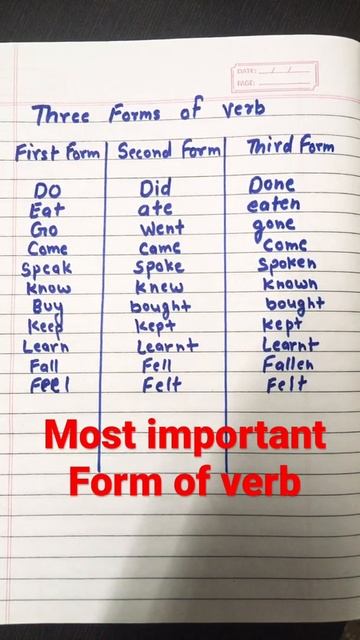 DATE: __/__/__
PAGE: ________
Three Forms of verb
First Form Second Form Third Form
Do Did Done
Eat ate eaten
Go Went gone
Come Came Come
Speak Spoke Spoken
Know Knew Known
Buy bought bought
Keep Kept Kept
Learn Learnt Learnt
Fall Fell Fallen
Feel Felt Felt
Most important
Form of verb